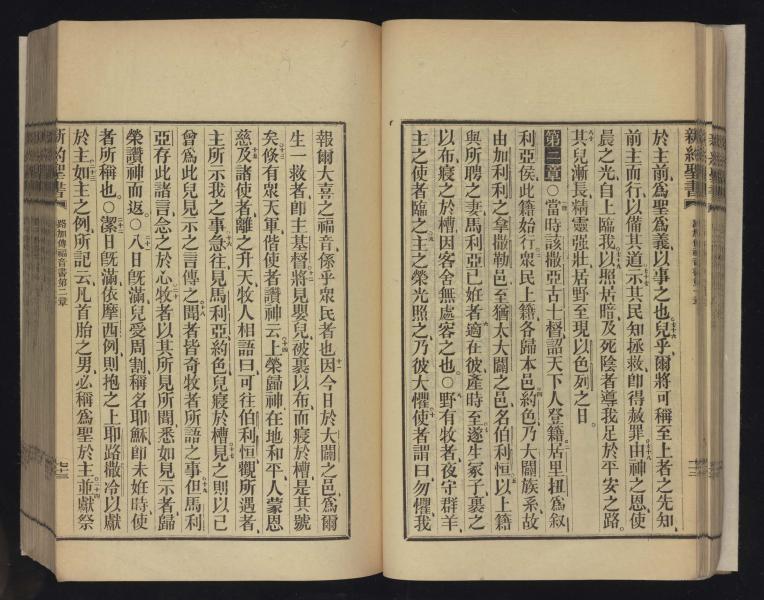 新約聖書
於主前爲聖爲義以事之也兒乎爾將可稱至上者之先知
前主而行以備其道示其民知拯救卽得赦罪由神之恩使
晨之光自上臨我以照居暗及死陰者導我足於平安之路
其兒漸長精靈强壯居野至現以色列之日
第二章○當時該撒亞古士督詔天下人登籍居里扭爲叙
利亞侯此籍始行衆民上籍各歸本邑約色乃大闢族系故
由加利利之拿撒勒邑至猶太大闢之邑名伯利恒以上籍
與所聘之妻馬利亞已姙者適在彼產時至遂生冢子裹之
以布寢之於槽因客舍無處容之也○野有牧者夜守群羊
主之使者臨之主之榮光照之乃彼大懼使者謂曰勿懼我
報爾大喜之福音係乎衆民者也因今日於大闢之邑爲爾
生一救者卽主基督將見嬰兒被裹以布而寢於槽是其號
矣倐有衆天軍偕使者讚神云上榮歸神在地和平人蒙恩
慈及諸使者離之升天牧人相語曰可往伯利恒觀所遇者
主所示我之事急往見馬利亞約色兒寢於槽見之則以已
曾爲此兒見示之言傳之聞者皆奇牧者所語之事但馬利
亞存此諸言念之於心牧者以其所見所聞悉如見示者歸
榮讚神而返○八日旣滿兒愛周割稱名耶穌卽未姙時使
者所稱也○潔日旣滿依摩西例則抱之上耶路撒冷以獻
於主如主之例所記云凡首胎之男必稱爲聖於主並獻祭
新約聖書 路加傳福音書第二章